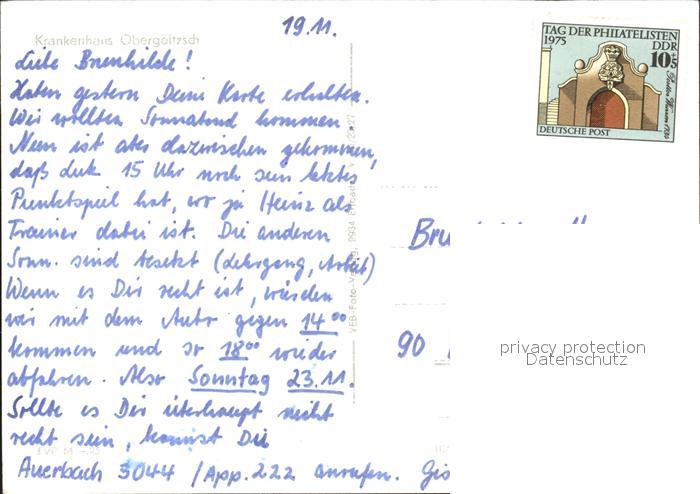 19.11.
Krankenhaus Obergöltzsch
Liebe Brunhilde!
Haben gestern Deine Karte erhalten.
Wir wollten Sonnabend kommen
Nun ist aber dazwischen gekommen,
daß 15 Uhr noch sein letztes
Punktspiel hat, wo ja Heinz als
Trainer dabei ist. Die anderen
Sonn. sind besetzt (Lehrgang, Arbeit)
Wenn es Dir recht ist, würden
wir mit dem Auto gegen 14⁰⁰
kommen und so 18⁰⁰ wieder
abfahren. Also Sonntag 23.11.
Sollte es Dir überhaupt nicht
recht sein, kannst Du
Auerbach 3044 / App. 222 anrufen. Gis
VEB-Foto-Verlag, 9934
TAG DER PHILATELISTEN
1975
DDR
10+5
DEUTSCHE POST
Bru
90
privacy protection
Datenschutz